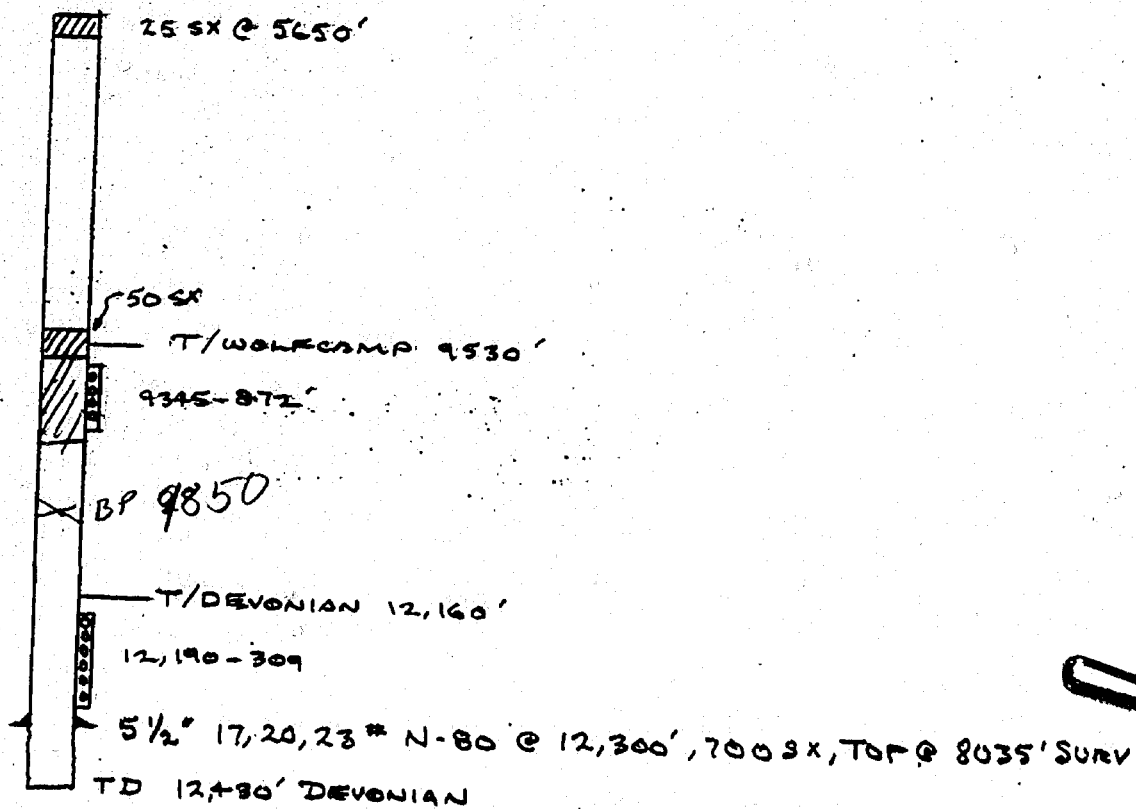 25 SX @ 5650'
50 SX
T/WOLFCAMP 9530'
9345-872'
BP 9850
T/DEVONIAN 12,160'
12,190-309
5 1/2" 17,20,23# N-80 @ 12,300', 700 SX, TOP @ 8035' SURV
TD 12,480' DEVONIAN